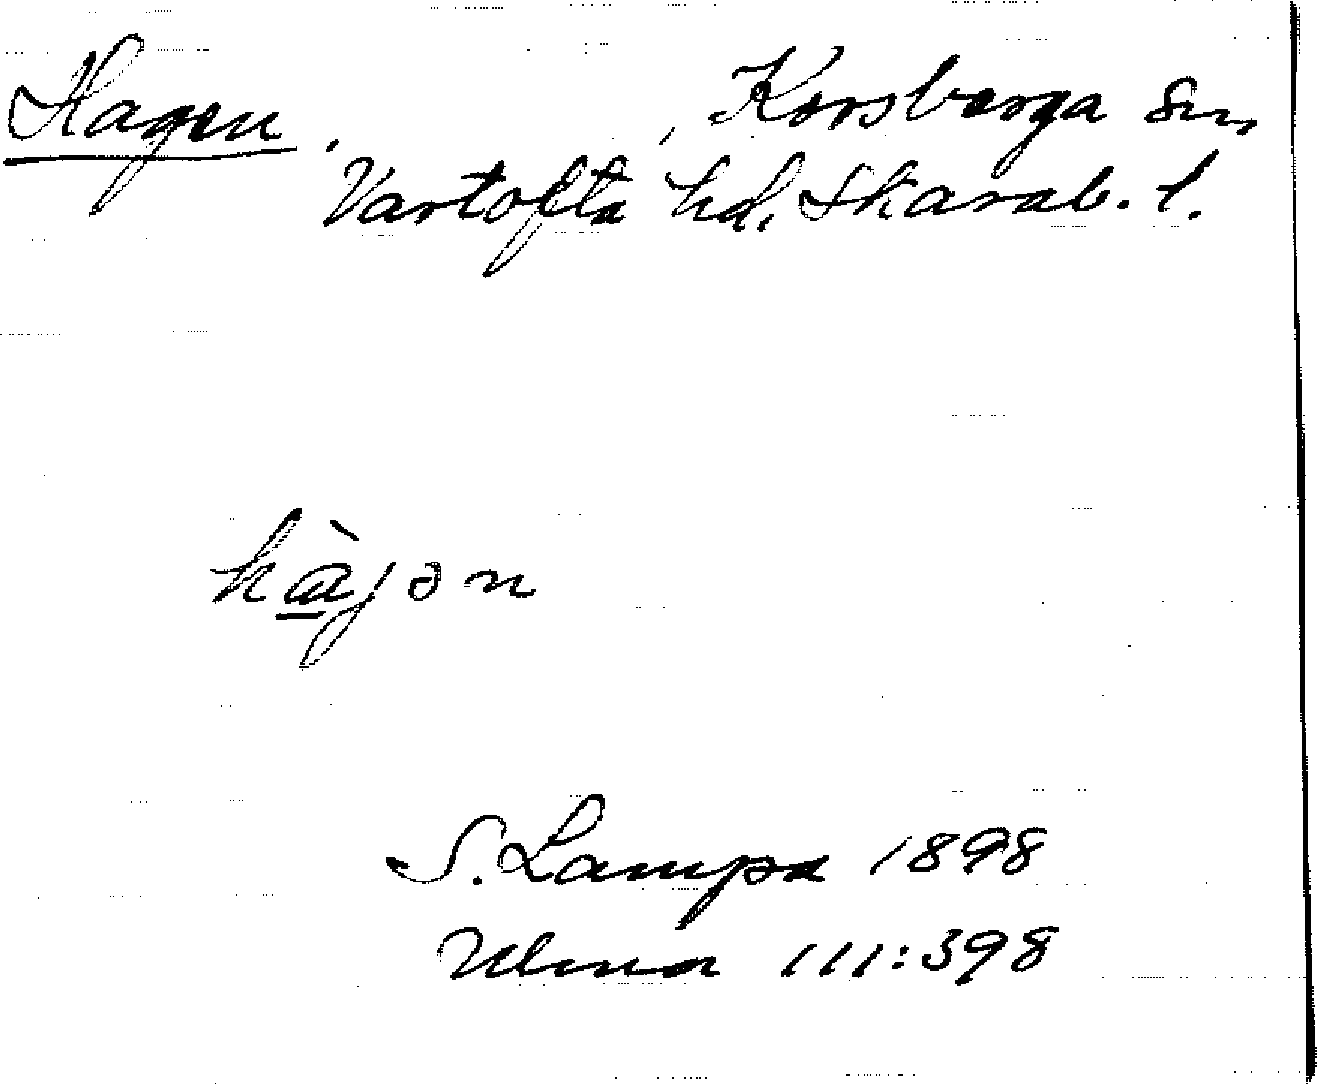 Hagen, Korsberga sn,
Vartofta hd, Skarab. l.
hàjən
S. Lampa 1898
Ulma 111:398